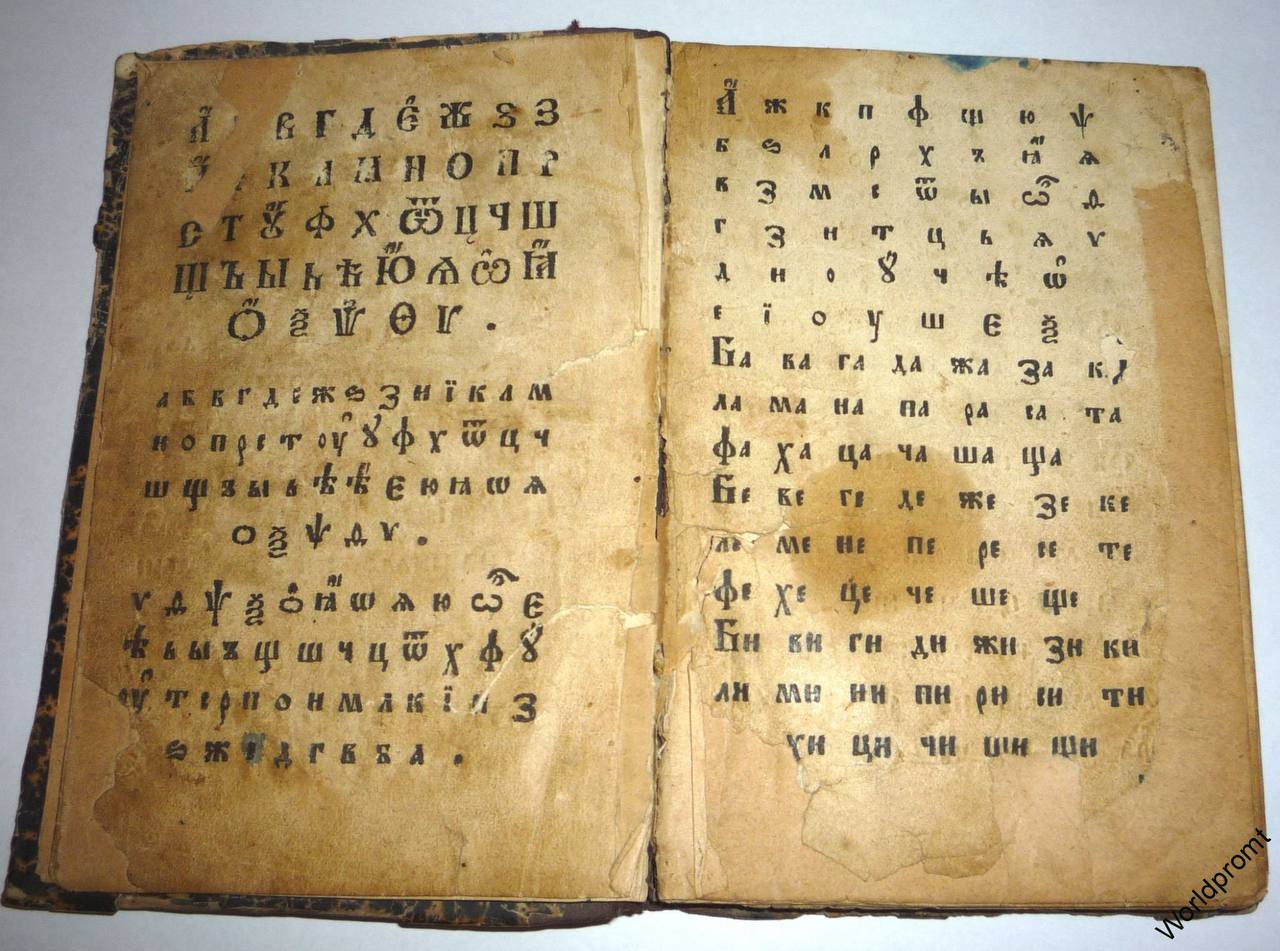 А҆ В Г Д Є҆ Ж Ѕ З
К Л М Н О П Р
С Т Ꙋ҆ Ф Х Ѿ Ц Ч Ш
Щ Ъ Ы Ь Ѣ Ю҆ Ѧ Ѽ Ꙗ҆
Ѻ҆ Ѯ Ѱ Ѳ Ѵ .
а б в г д е ж ѕ з и ї к л м
н о п р с т оу҆ ꙋ҆ ф х ѿ ц ч
ш щ ъ ы ь ѣ ѣ҆ є ю ꙗ ѡ ѧ
ѻ ѯ ѱ ѳ ѵ .
ѵ ѳ ѱ ѯ ѻ҆ ꙗ҆ ѡ ѧ ю ѽ є
ѣ ь ы ъ щ ш ч ц ѿ х ф ꙋ҆
оу҆ т с р п о н м л к ї и з
ѕ ж д г в б а .
А҆ ж к п ф щ ю ѱ
б ѕ л р х ъ ꙗ҆ ѧ
в з м с ѿ ы ѽ ѳ
г з н т ц ь ѧ ѵ
д н о ꙋ҆ ч ѣ ѡ҆
е ї о у ш є ѯ
Ба ва га да жа за
ла ма на па ра са та
фа ха ца ча ша ща
Бе ве ге де же зе ке
ле ме не пе ре се те
фе хе це че ше ще
Би ви ги ди жи зи ки
ли ми ни пи ри си ти
хи ци чи ши щи
Worldpromt